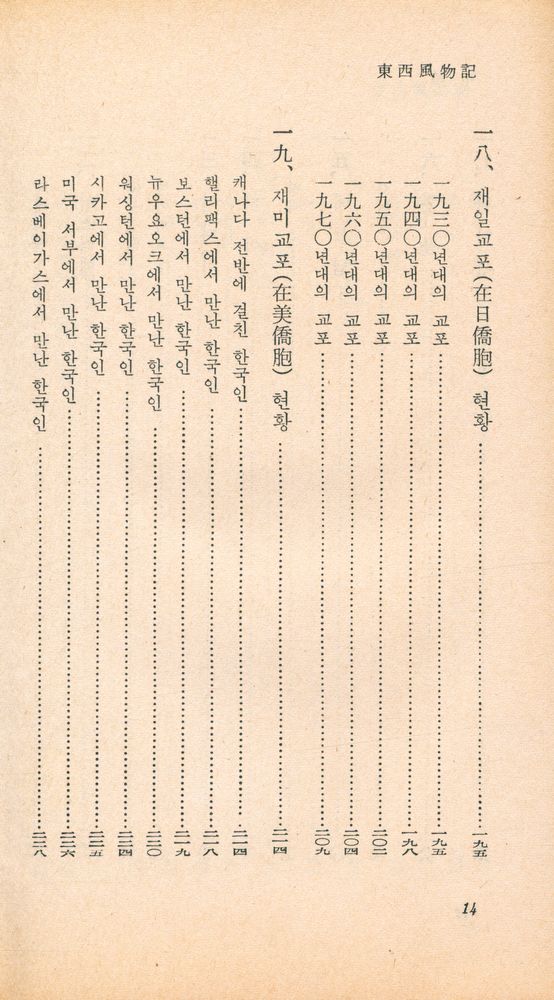 東西風物記
一八、재일교포(在日僑胞) 현황 …… 一九五
一九三〇년대의 교포 …… 一九五
一九四〇년대의 교포 …… 一九八
一九五〇년대의 교포 …… 二〇二
一九六〇년대의 교포 …… 二〇四
一九七〇년대의 교포 …… 二〇九
一九、재미교포(在美僑胞) 현황 …… 二一四
캐나다 전반에 걸친 한국인 …… 二一四
핼리팩스에서 만난 한국인 …… 二一八
보스턴에서 만난 한국인 …… 二一九
뉴우요오크에서 만난 한국인 …… 二二〇
워싱턴에서 만난 한국인 …… 二二四
시카고에서 만난 한국인 …… 二二五
미국 서부에서 만난 한국인 …… 二二六
라스베이가스에서 만난 한국인 …… 二二八
14